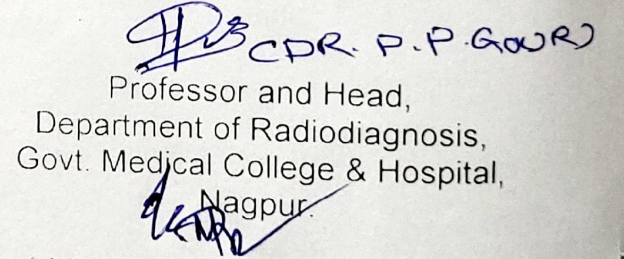 (DR. P.P. GOUR)
Professor and Head,
Department of Radiodiagnosis,
Govt. Medical College & Hospital,
Nagpur.